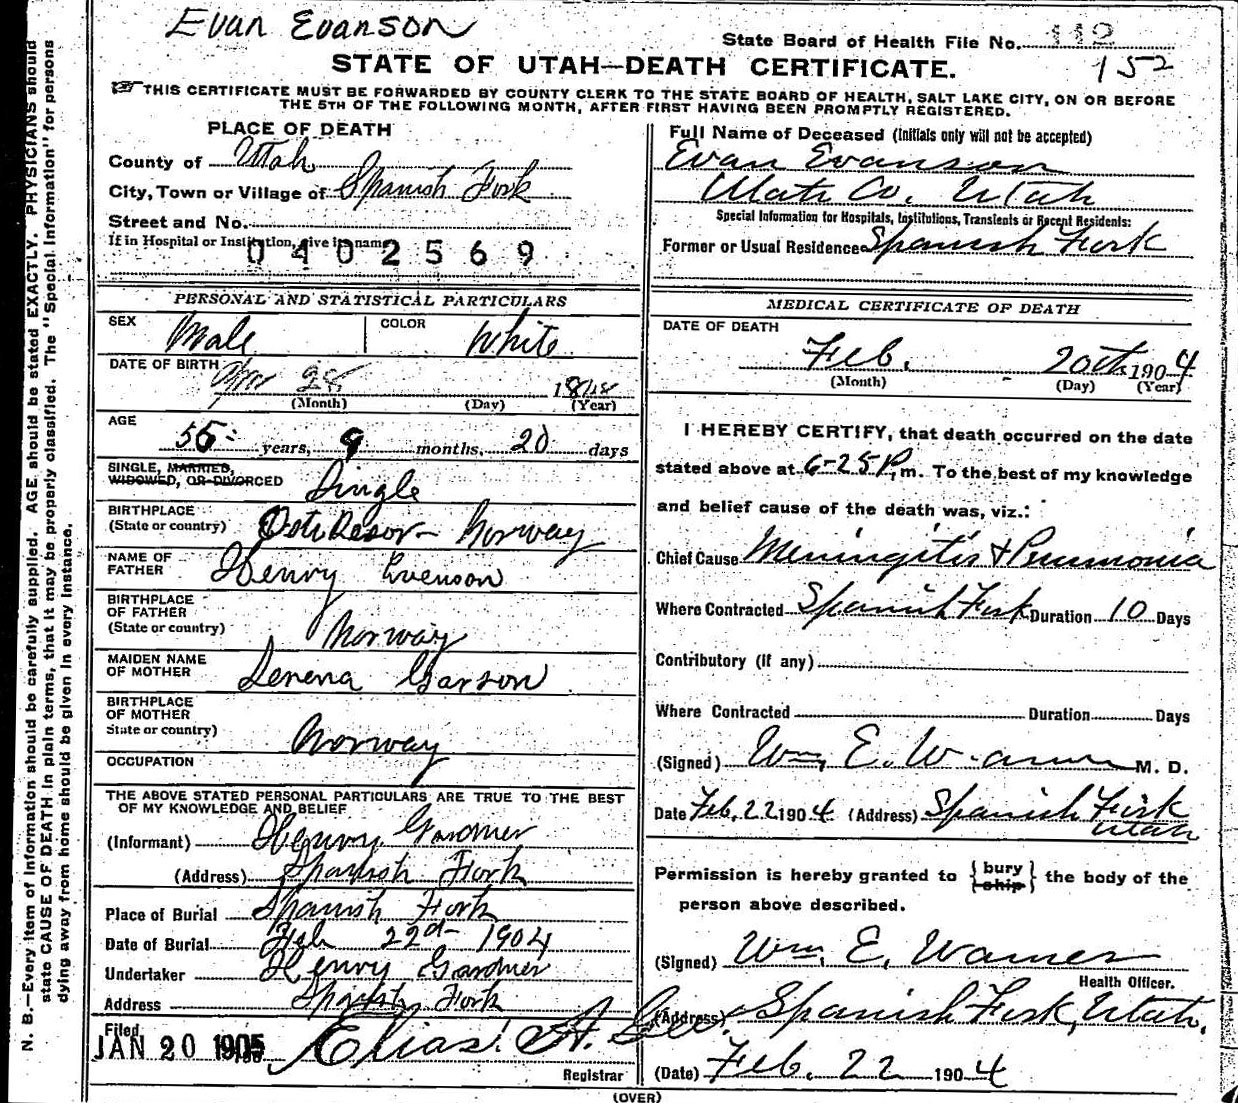 Evan Evanson
State Board of Health File No. 112
152
STATE OF UTAH—DEATH CERTIFICATE.
THIS CERTIFICATE MUST BE FORWARDED BY COUNTY CLERK TO THE STATE BOARD OF HEALTH, SALT LAKE CITY, ON OR BEFORE
THE 5TH OF THE FOLLOWING MONTH, AFTER FIRST HAVING BEEN PROMPTLY REGISTERED.
N. B.—Every item of information should be carefully supplied. AGE should be stated EXACTLY. PHYSICIANS should
state CAUSE OF DEATH in plain terms, that it may be properly classified. The "Special Information" for persons
dying away from home should be given in every instance.
PLACE OF DEATH
County of Utah
City, Town or Village of Spanish Fork
Street and No.
If in Hospital or Institution, give its name
0402569
PERSONAL AND STATISTICAL PARTICULARS
SEX Male COLOR White
DATE OF BIRTH 28 1848
(Month) (Day) (Year)
AGE
55 years, 9 months, 20 days
SINGLE, MARRIED,
WIDOWED, OR DIVORCED Single
BIRTHPLACE
(State or country) Norway
NAME OF
FATHER Henry Evenson
BIRTHPLACE
OF FATHER
(State or country) Norway
MAIDEN NAME
OF MOTHER Serena Garson
BIRTHPLACE
OF MOTHER
State or country) Norway
OCCUPATION
THE ABOVE STATED PERSONAL PARTICULARS ARE TRUE TO THE BEST
OF MY KNOWLEDGE AND BELIEF
(Informant) Henry Gardner
(Address) Spanish Fork
Place of Burial Spanish Fork
Date of Burial Feb 22d 1904
Undertaker Henry Gardner
Address Spanish Fork
Filed
JAN 20 1905 Elias A. Gee.
Registrar
Full Name of Deceased (Initials only will not be accepted)
Evan Evanson
Utah Co. Utah
Special Information for Hospitals, Institutions, Transients or Recent Residents:
Former or Usual Residence Spanish Fork
MEDICAL CERTIFICATE OF DEATH
DATE OF DEATH
Feb. 20th 1904
(Month) (Day) (Year)
I HEREBY CERTIFY, that death occurred on the date
stated above at 6-25 P.m. To the best of my knowledge
and belief cause of the death was, viz.:
Chief Cause Meningitis & Pneumonia
Where Contracted Spanish Fork Duration 10 Days
Contributory (if any)
Where Contracted Duration Days
(Signed) Wm, E. Warner M. D.
Date Feb. 22 1904 (Address) Spanish Fork
Utah
Permission is hereby granted to {bury
ship} the body of the
person above described.
(Signed) Wm. E. Warner
Health Officer.
(Address) Spanish Fork, Utah.
(Date) Feb. 22 1904
(OVER)